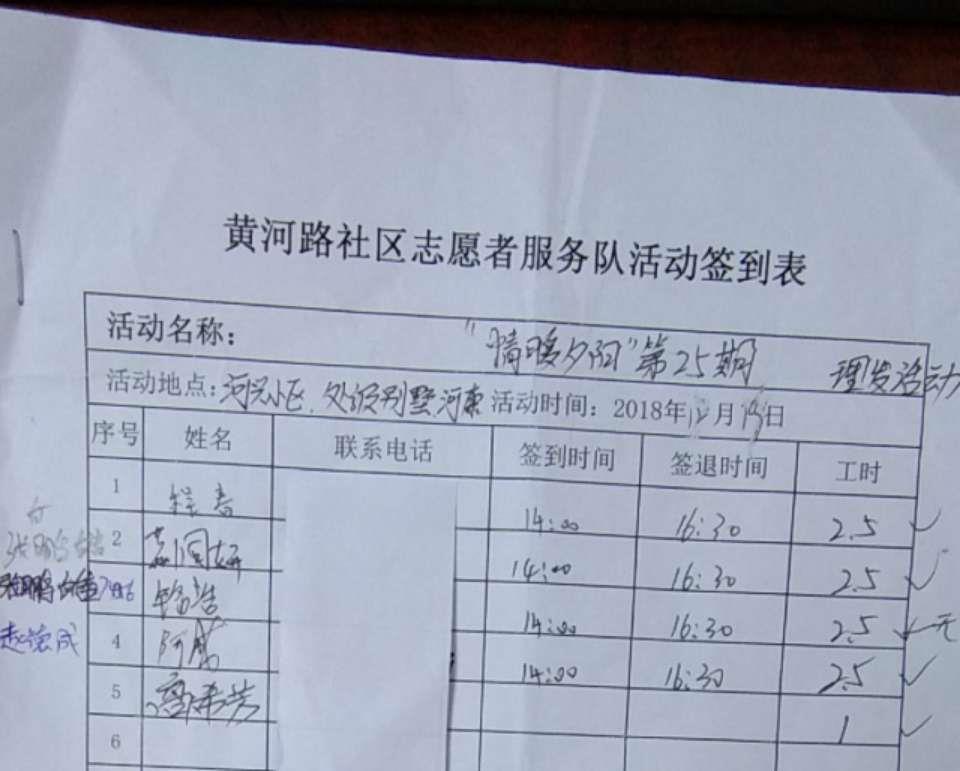 黄河路社区志愿者服务队活动签到表
活动名称： "情暖夕阳"第25期 理发活动
活动地点：河兴小区、处级别墅河东 活动时间：2018年12月19日
序号 姓名 联系电话 签到时间 签退时间 工时
1 程春 14:00 16:30 2.5 ✓
2 14:00 16:30 2.5 ✓
浩 14:00 16:30 2.5 ✓无
赵德成 4 阿 14:00 16:30 2.5 ✓
5 高希芳 1 ✓
6